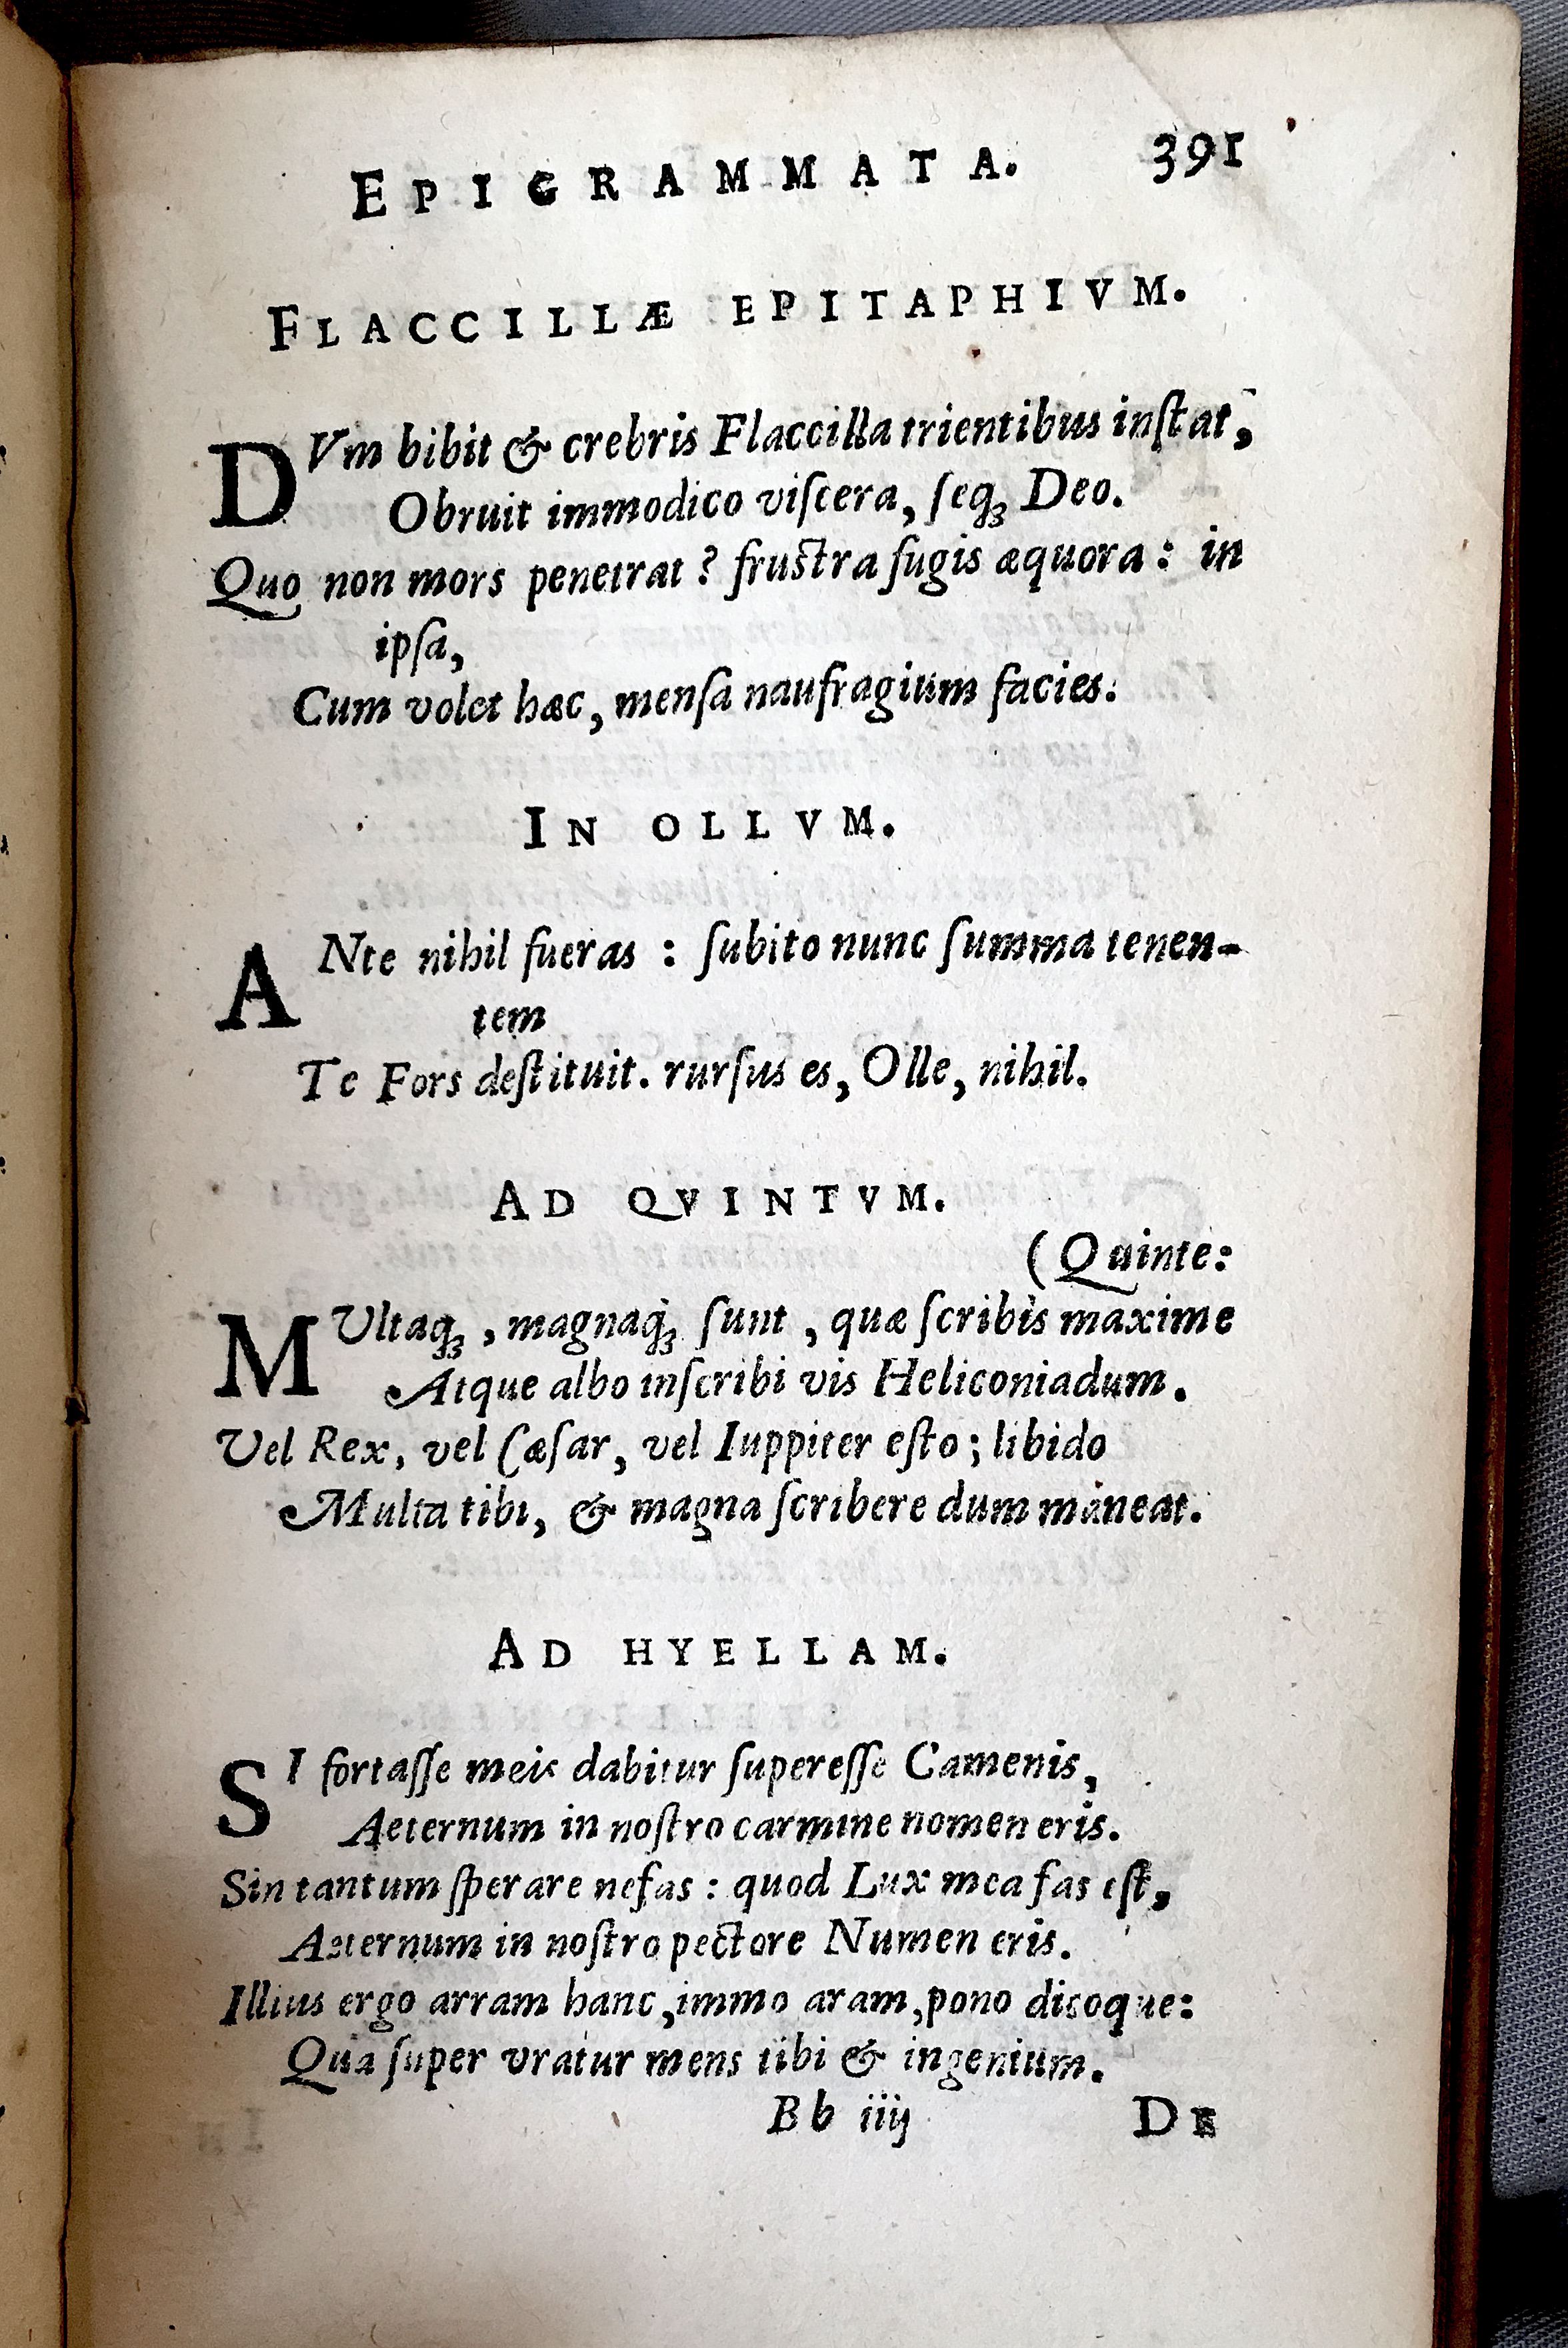 EPIGRAMMATA. 391
FLACCILLÆ EPITAPHIVM.
DVm bibit & crebris Flaccilla trientibus inſtat,
Obruit immodico viſcera, ſeq́ꝫ Deo.
Quo non mors penetrat? fruſtra fugis æquora: in
ipſa,
Cum volet hæc, menſa naufragium facies.
IN OLLVM.
ANte nihil fueras: ſubito nunc ſumma tenen-
tem
Te Fors deſtituit. rurſus es, Olle, nihil.
AD QVINTVM.
(Quinte:
MUltaq́ꝫ, magnaq́ꝫ ſunt, quæ ſcribis maxime
Atque albo inſcribi vis Heliconiadum.
Vel Rex, vel Cæſar, vel Iuppiter eſto; libido
Multa tibi, & magna ſcribere dum maneat.
AD HYELLAM.
SI fortaſſe meis dabitur ſupereſſe Camenis,
Aeternum in noſtro carmine nomen eris.
Sin tantum ſperare nefas: quod Lux mea fas eſt,
Aeternum in noſtro pectore Numen eris.
Illius ergo arram hanc, immo aram, pono dicoque:
Qua ſuper vratur mens tibi & ingenium.
Bb iiij DE